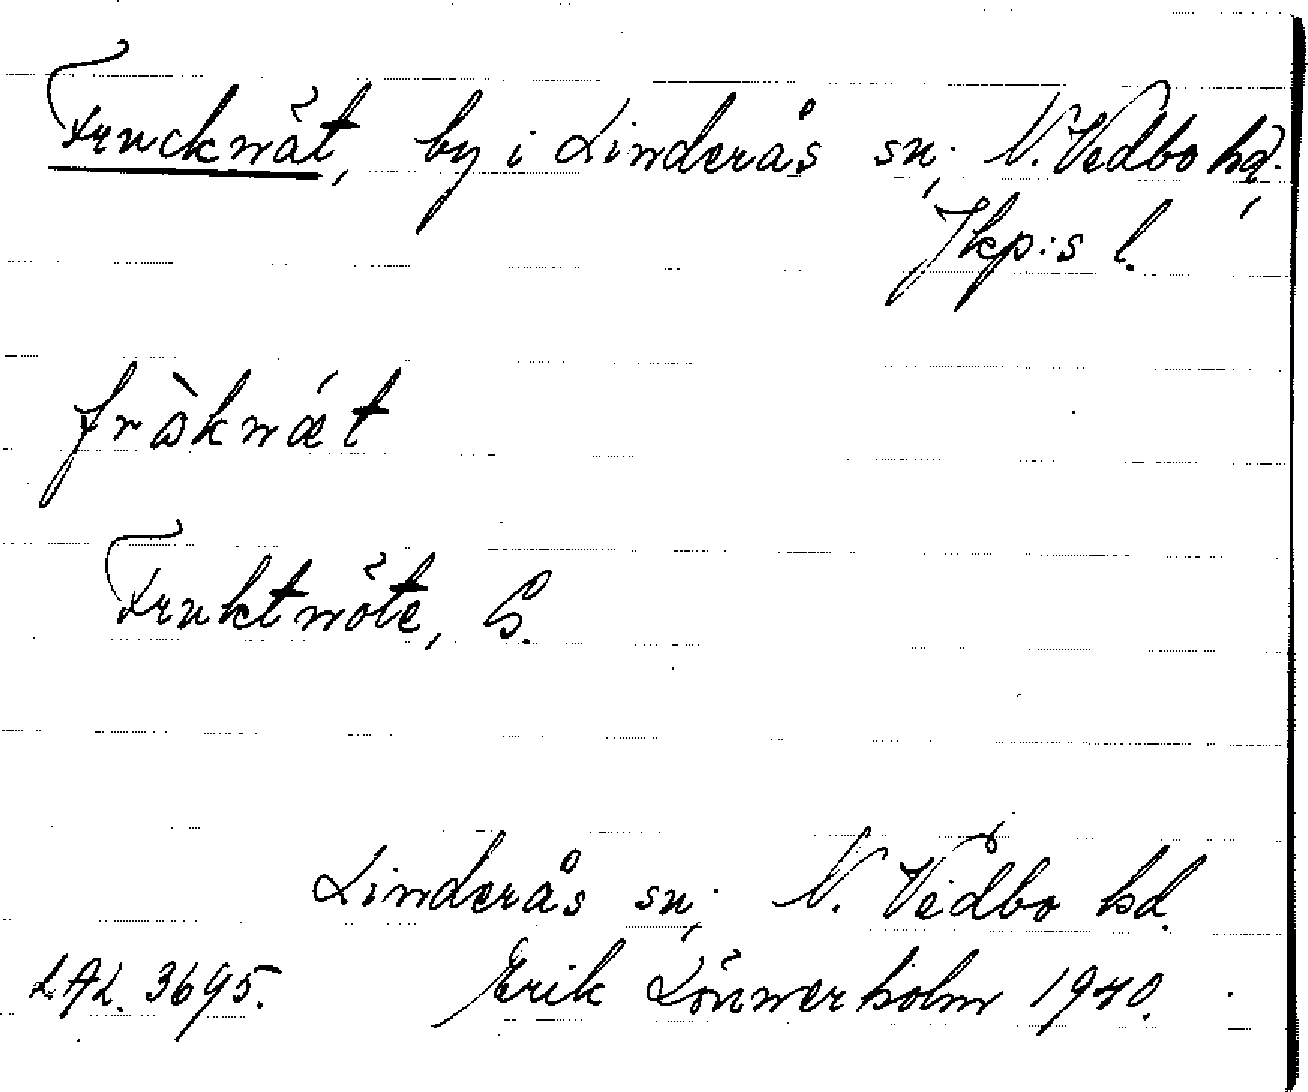 Frucknät, by i Linderås sn, N. Vedbo hd,
Jkp:s l.
fròknǽt
Fruktnöte, G.
Linderås sn, N. Vedbo hd.
LAL. 3695. Erik Lönnerholm 1940.